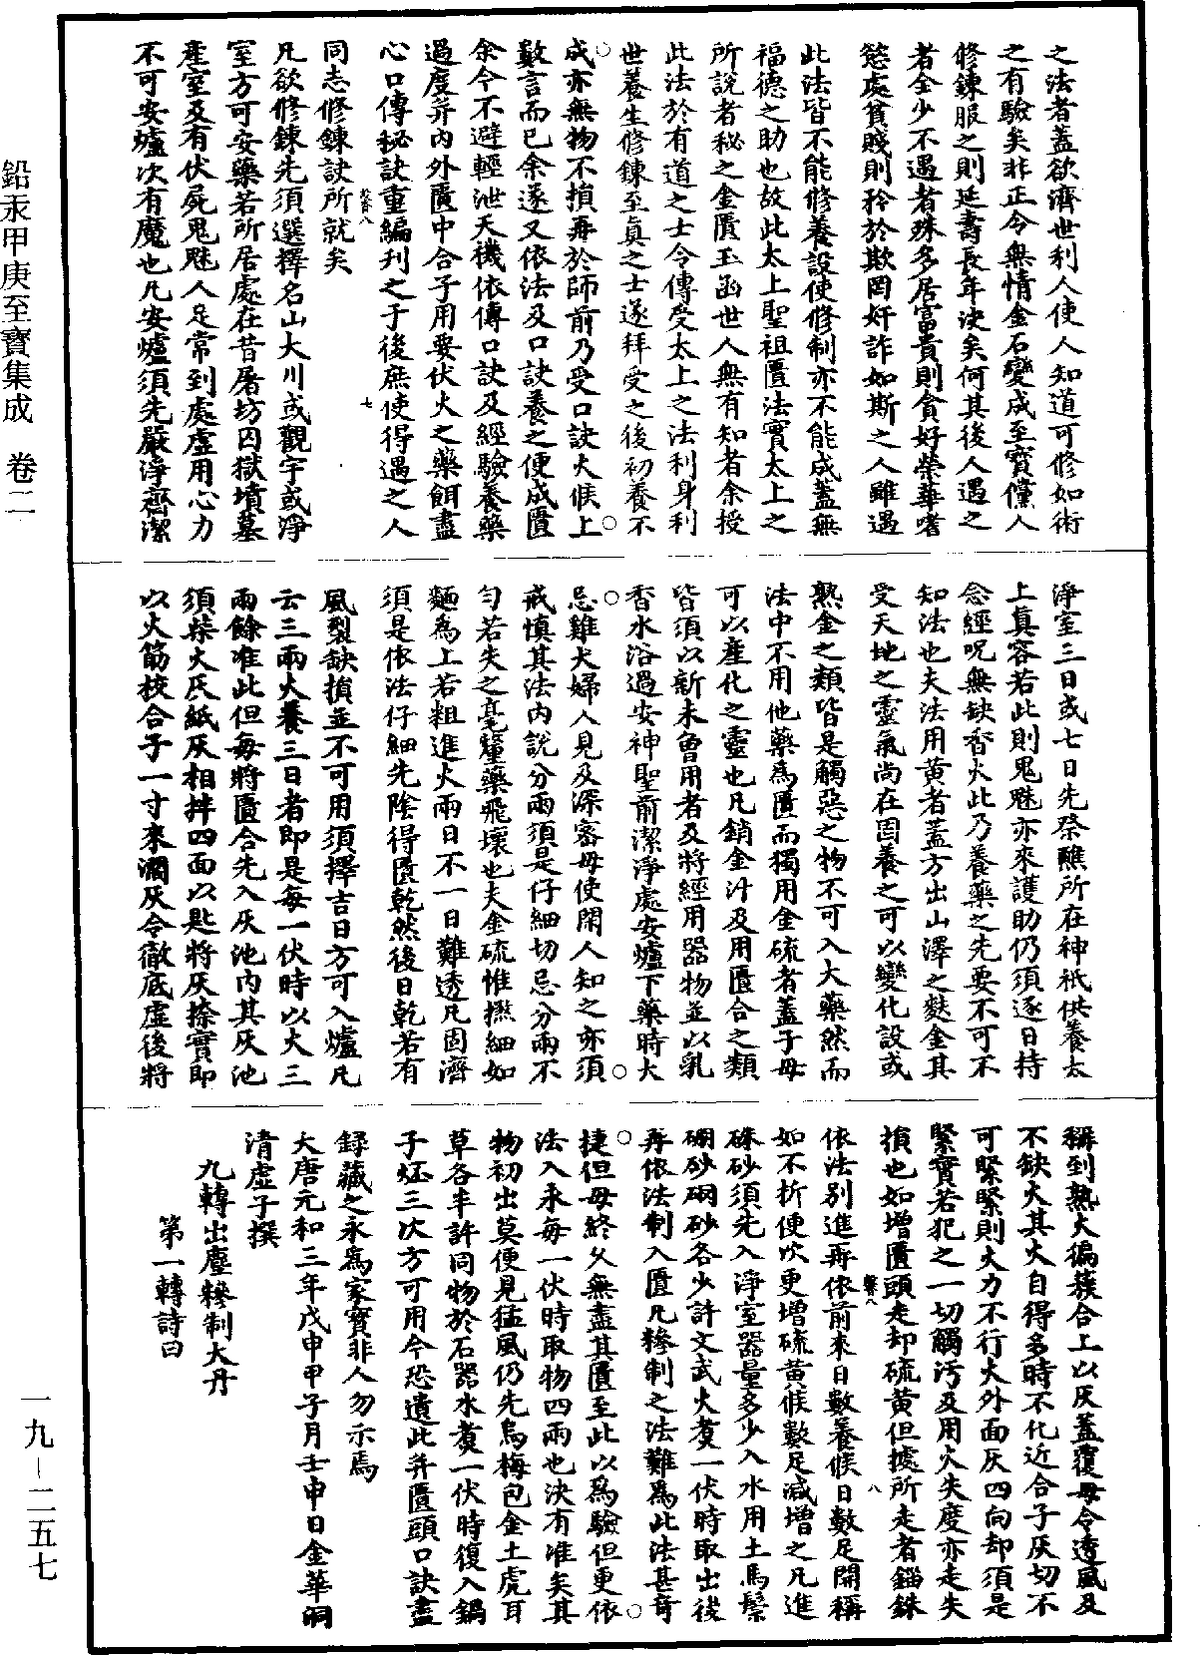 之法者蓋欲濟世利人使人知道可修如術
之有驗矣非正令無情金石變成至寶儻人
修鍊服之則延壽長年決矣何其後人遇之
者全少不遇者殊多居富貴則貪好榮華嗜
慾處貧賤則矜於欺罔奸詐如斯之人雖遇
此法皆不能修養設使修制亦不能成蓋無
福德之助也故此太上聖祖匱法實太上之
所說者秘之金匱玉函世人無有知者余授
此法於有道之士令傳受太上之法利身利
世養生修鍊至真之士遂拜受之後初養不
成亦無物不損再於師前乃受口訣火候上
數言而已余遂又依法及口訣養之便成匱
余今不避輕泄天機依傳口訣及經驗養藥
過度并內外匱中合子用要伏火之藥餌盡
心口傳秘訣重編刋之于後庶使得遇之人
同志修鍊訣所就矣
凡欲修鍊先須選擇名山大川或觀宇或淨
室方可安藥若所居處在昔屠坊囚獄墳墓
產室及有伏屍鬼魅人足常到處虛用心力
不可安爐次有魔也凡安爐須先嚴淨齋潔
淨室三日或七日先祭醮所在神祇供養太
上真容若此則鬼魅亦來護助仍須逐日持
念經呪無缺香火此乃養藥之先要不可不
知法也夫法用黃者蓋方出山澤之麩金其
受天地之靈氣尚在固養之可以變化設或
熟金之類皆是觸惡之物不可入大藥然而
法中不用他藥為匱而獨用金硫者蓋子母
可以產化之靈也凡銷金汁及用匱合之類
皆須以新未曾用者及將經用器物並以乳
香水浴過安神聖前潔淨處安爐下藥時大
忌雞犬婦人見及深審毋使閑人知之亦須
戒慎其法內說分兩須是仔細切忌分兩不
勻若失之毫釐藥飛壞也夫金硫惟撚細如
麵為上若粗進火兩日不一日難透凡固濟
須是依法仔細先陰得匱乾然後日乾若有
風裂缺損並不可用須擇吉日方可入爐凡
云三兩火養三日者即是每一伏時以火三
兩餘准此但每將匱合先入灰池內其灰池
須柴火氏紙灰相拌四面以匙將灰捺實即
以火筯校合子一寸來濶灰令徹底虛後將
稱到熟火徧蔟合上以灰蓋覆毋令透風及
不缺火其火自得多時不化近合子灰切不
可緊緊則火力不行火外面灰四向却須是
緊實若犯之一切觸污及用火失度亦走失
損也如增匱頭走却硫黃但據所走者錙銖
依法別進再依前來日數養候日數足開稱
如不折便次更增硫黃候數足減增之凡進
硃砂須先入淨室器量多少入水用土馬鬃
硇砂硇砂各少許文武火煑一伏時取出後
再依法制入匱凡糝制之法難為此法甚奇
捷但毋終久無盡其匱至此以為驗但更依
法入汞每一伏時取物四兩也決有准矣其
物初出莫便見猛風仍先烏梅包金土虎耳
草各半許同物於石器水煑一伏時復入鍋
子烀三次方可用今恐遺此并匱頭口訣盡
錄藏之永為家寶非人勿示焉
大唐元和三年戊申甲子月壬申日金華洞
清虛子撰
九轉出塵糝制大丹
第一轉詩曰
鉛汞甲庚至寶集成 卷二
一九－二五七